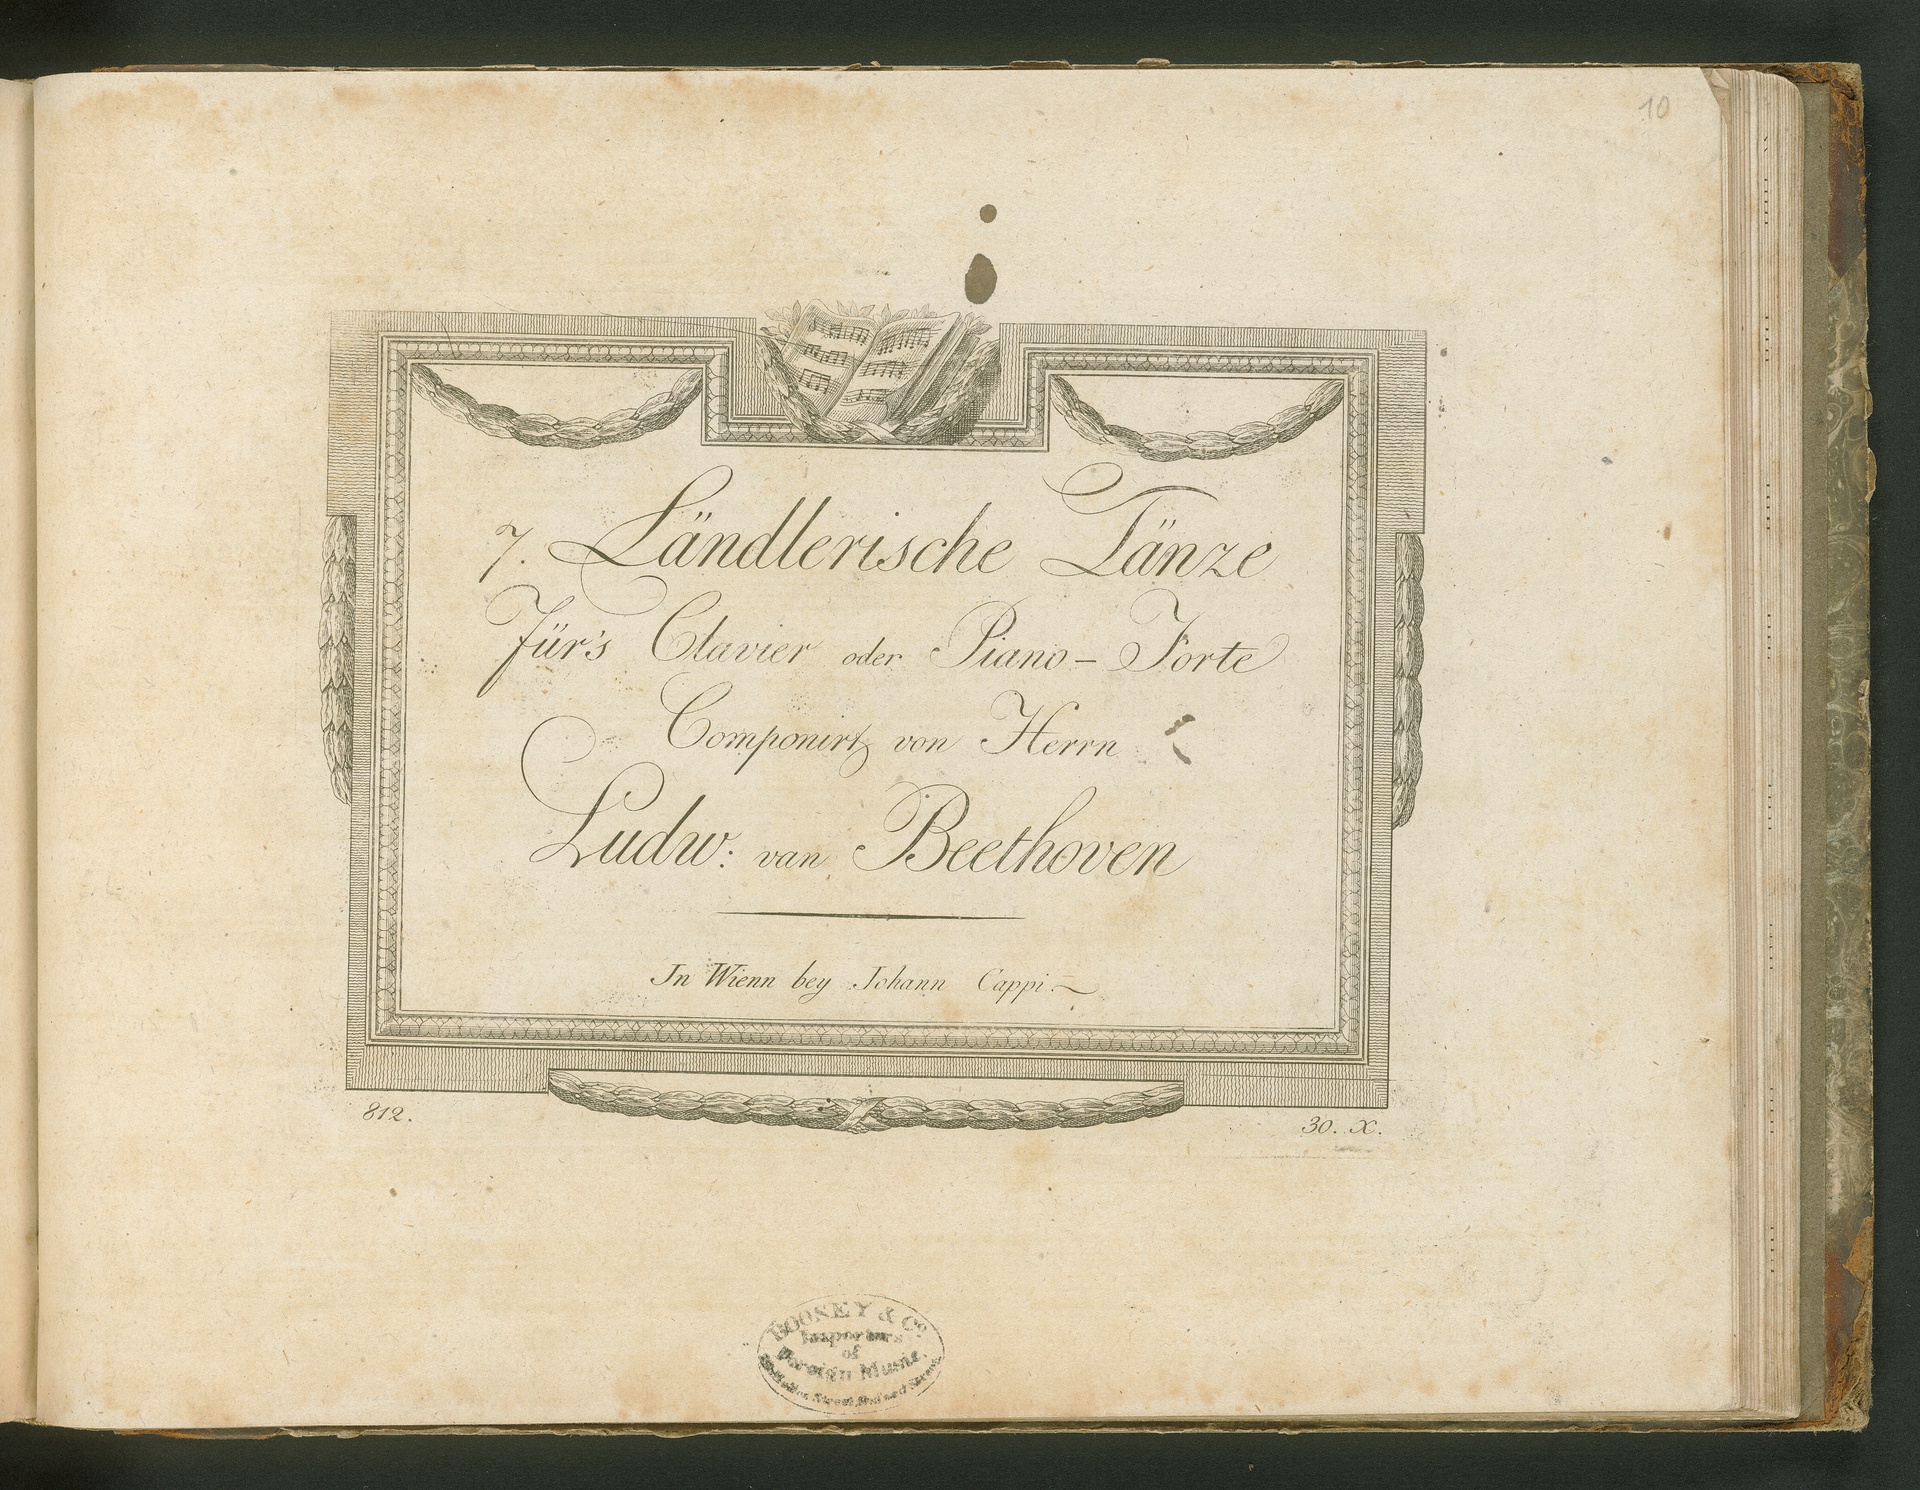 10
7. Ländlerische Tänze
Für's Clavier oder Piano-Forte
Componirt von Herrn
Ludw: van Beethoven
In Wienn bey Johann Cappi
812.
30. X.
BOOSEY & Co.
Importers
of
Foreign Music,
Street